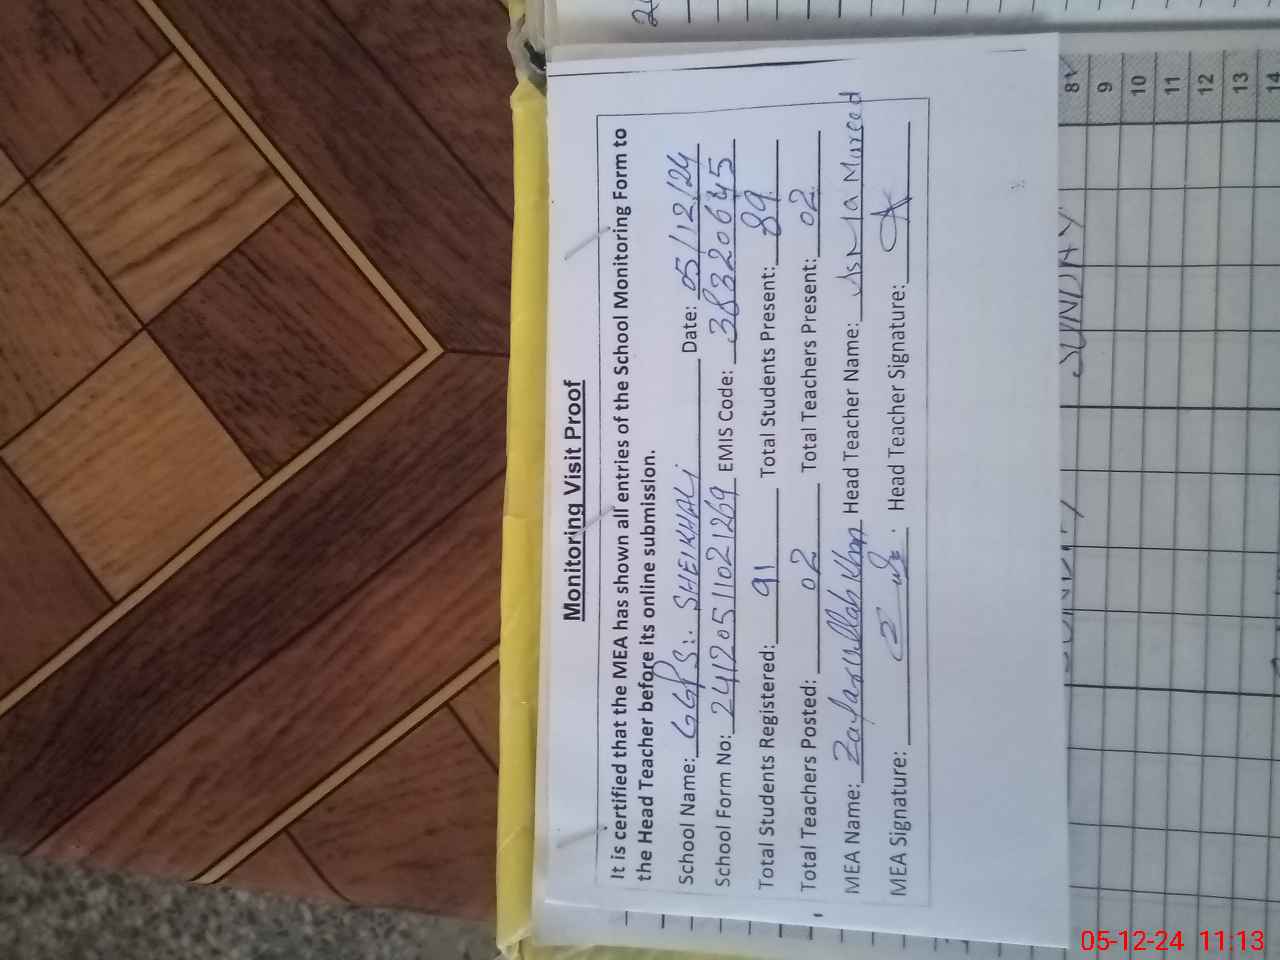 Monitoring Visit Proof
It is certified that the MEA has shown all entries of the School Monitoring Form to
the Head Teacher before its online submission.
School Name: GGPS: SHEIKHALI Date: 05/12/24
School Form No: 24120511021269 EMIS Code: 38320645
Total Students Registered: 91 Total Students Present: 89
Total Teachers Posted: 02 Total Teachers Present: 02
MEA Name: Zafarullah Khan Head Teacher Name: Asma Mureed
MEA Signature: Head Teacher Signature:
8
9
10
11
12
13
14
SUNDAY
SUNDAY
05-12-24 11:13